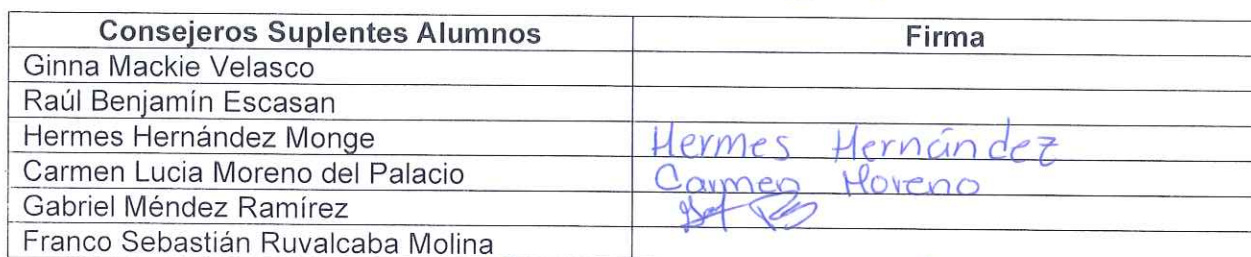 Consejeros Suplentes Alumnos Firma
Ginna Mackie Velasco
Raúl Benjamín Escasan
Hermes Hernández Monge Hermes Hernández
Carmen Lucia Moreno del Palacio Carmen Moreno
Gabriel Méndez Ramírez
Franco Sebastián Ruvalcaba Molina